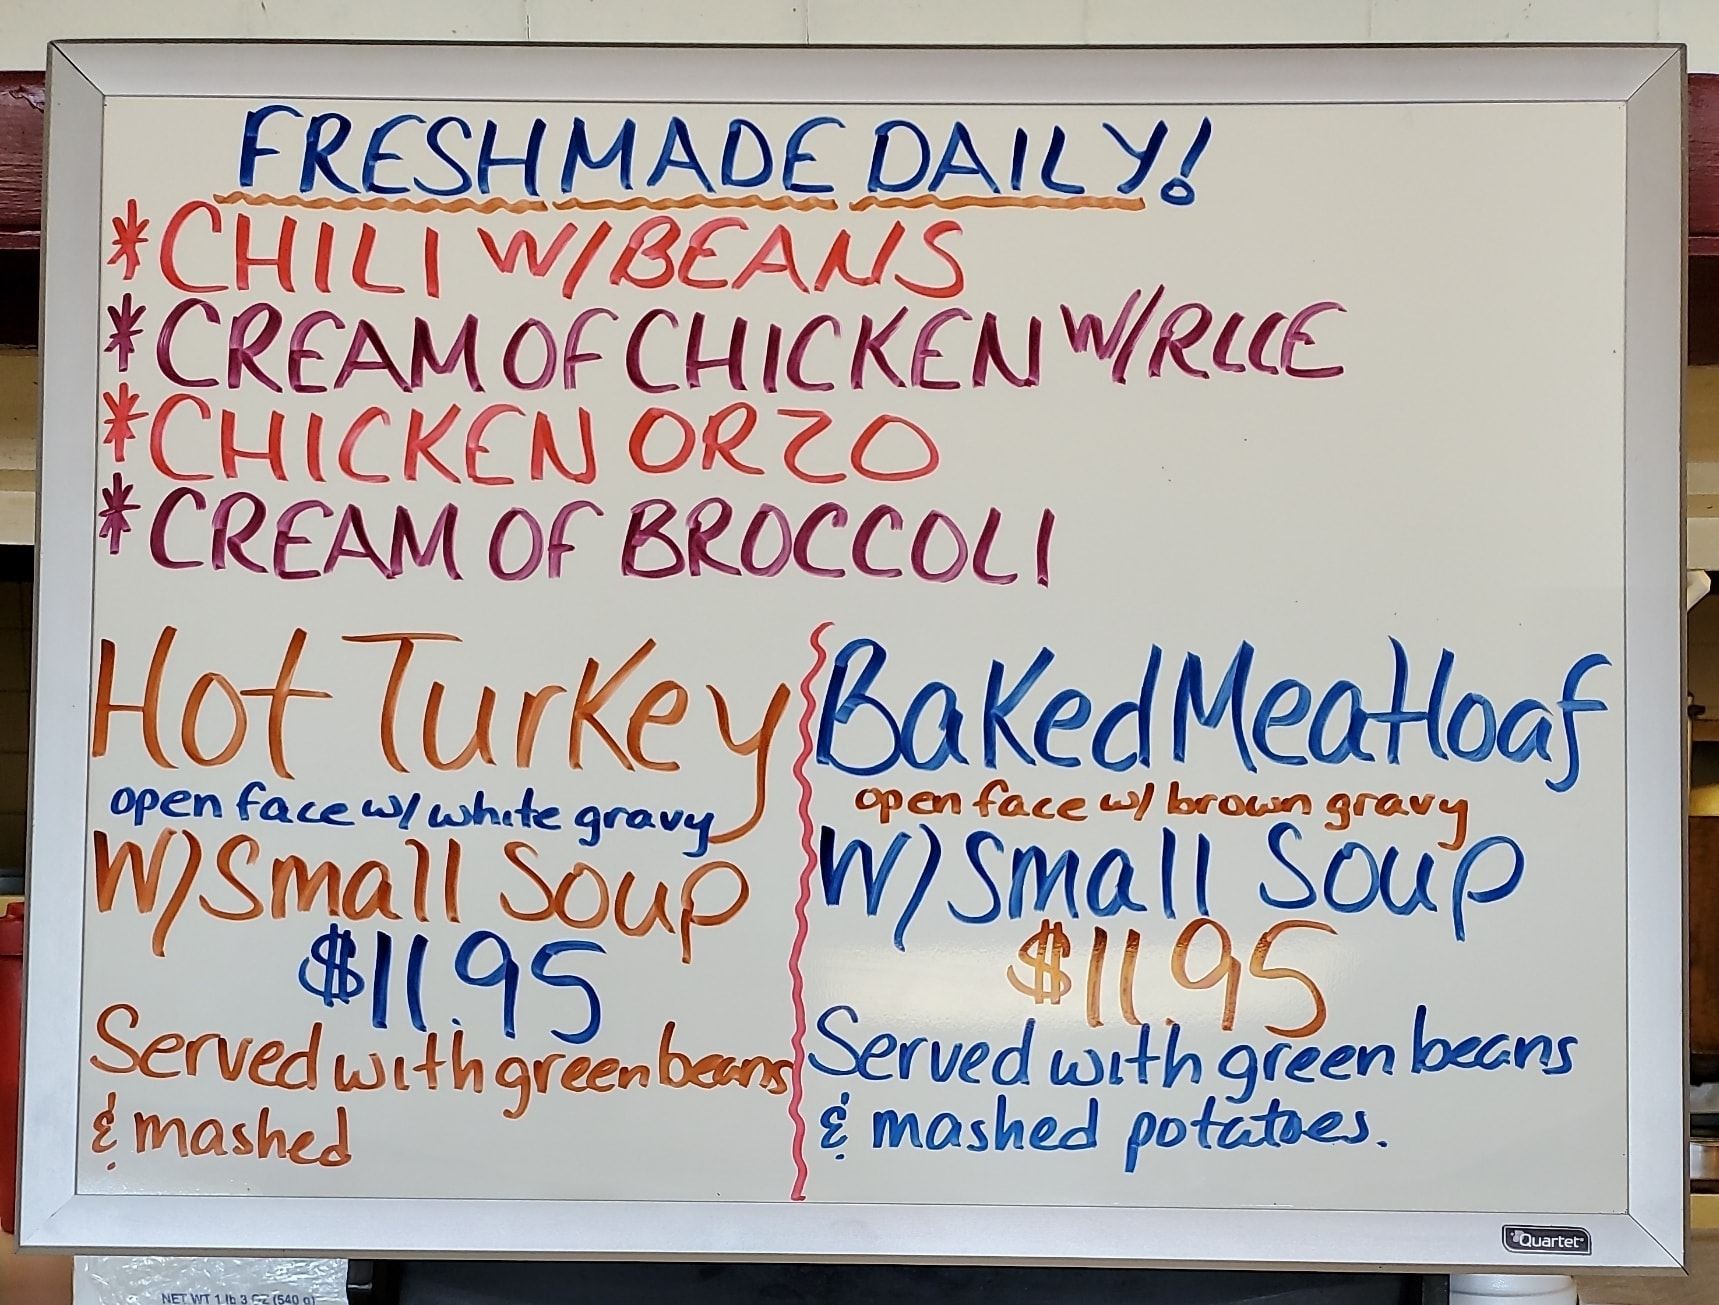 FRESH MADE DAILY!
*CHILI W/BEANS
*CREAM OF CHICKEN W/RICE
*CHICKEN ORZO
*CREAM OF BROCCOLI
Hot Turkey
open face w/ white gravy
W/Small Soup
$11.95
Served with green beans
& mashed
Baked Meatloaf
open face w/ brown gravy
W/Small Soup
$11.95
Served with green beans
& mashed potatoes.
Quartet
NET WT 1 lb 3 oz (540 g)